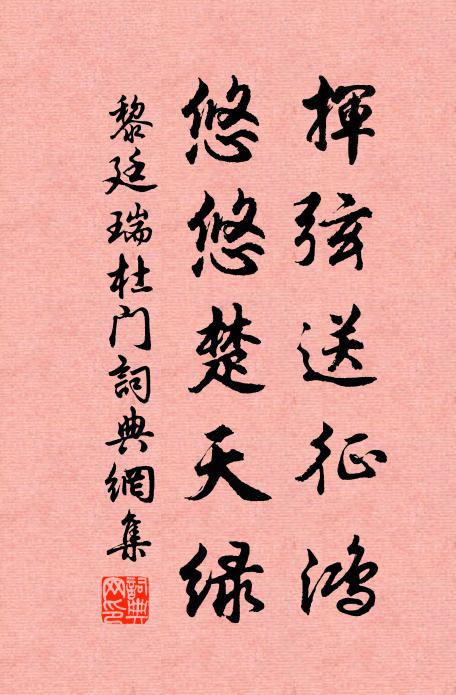 揮弦送征鴻
悠悠楚天绿
黎廷瑞杜门詞典網集
詞典网印